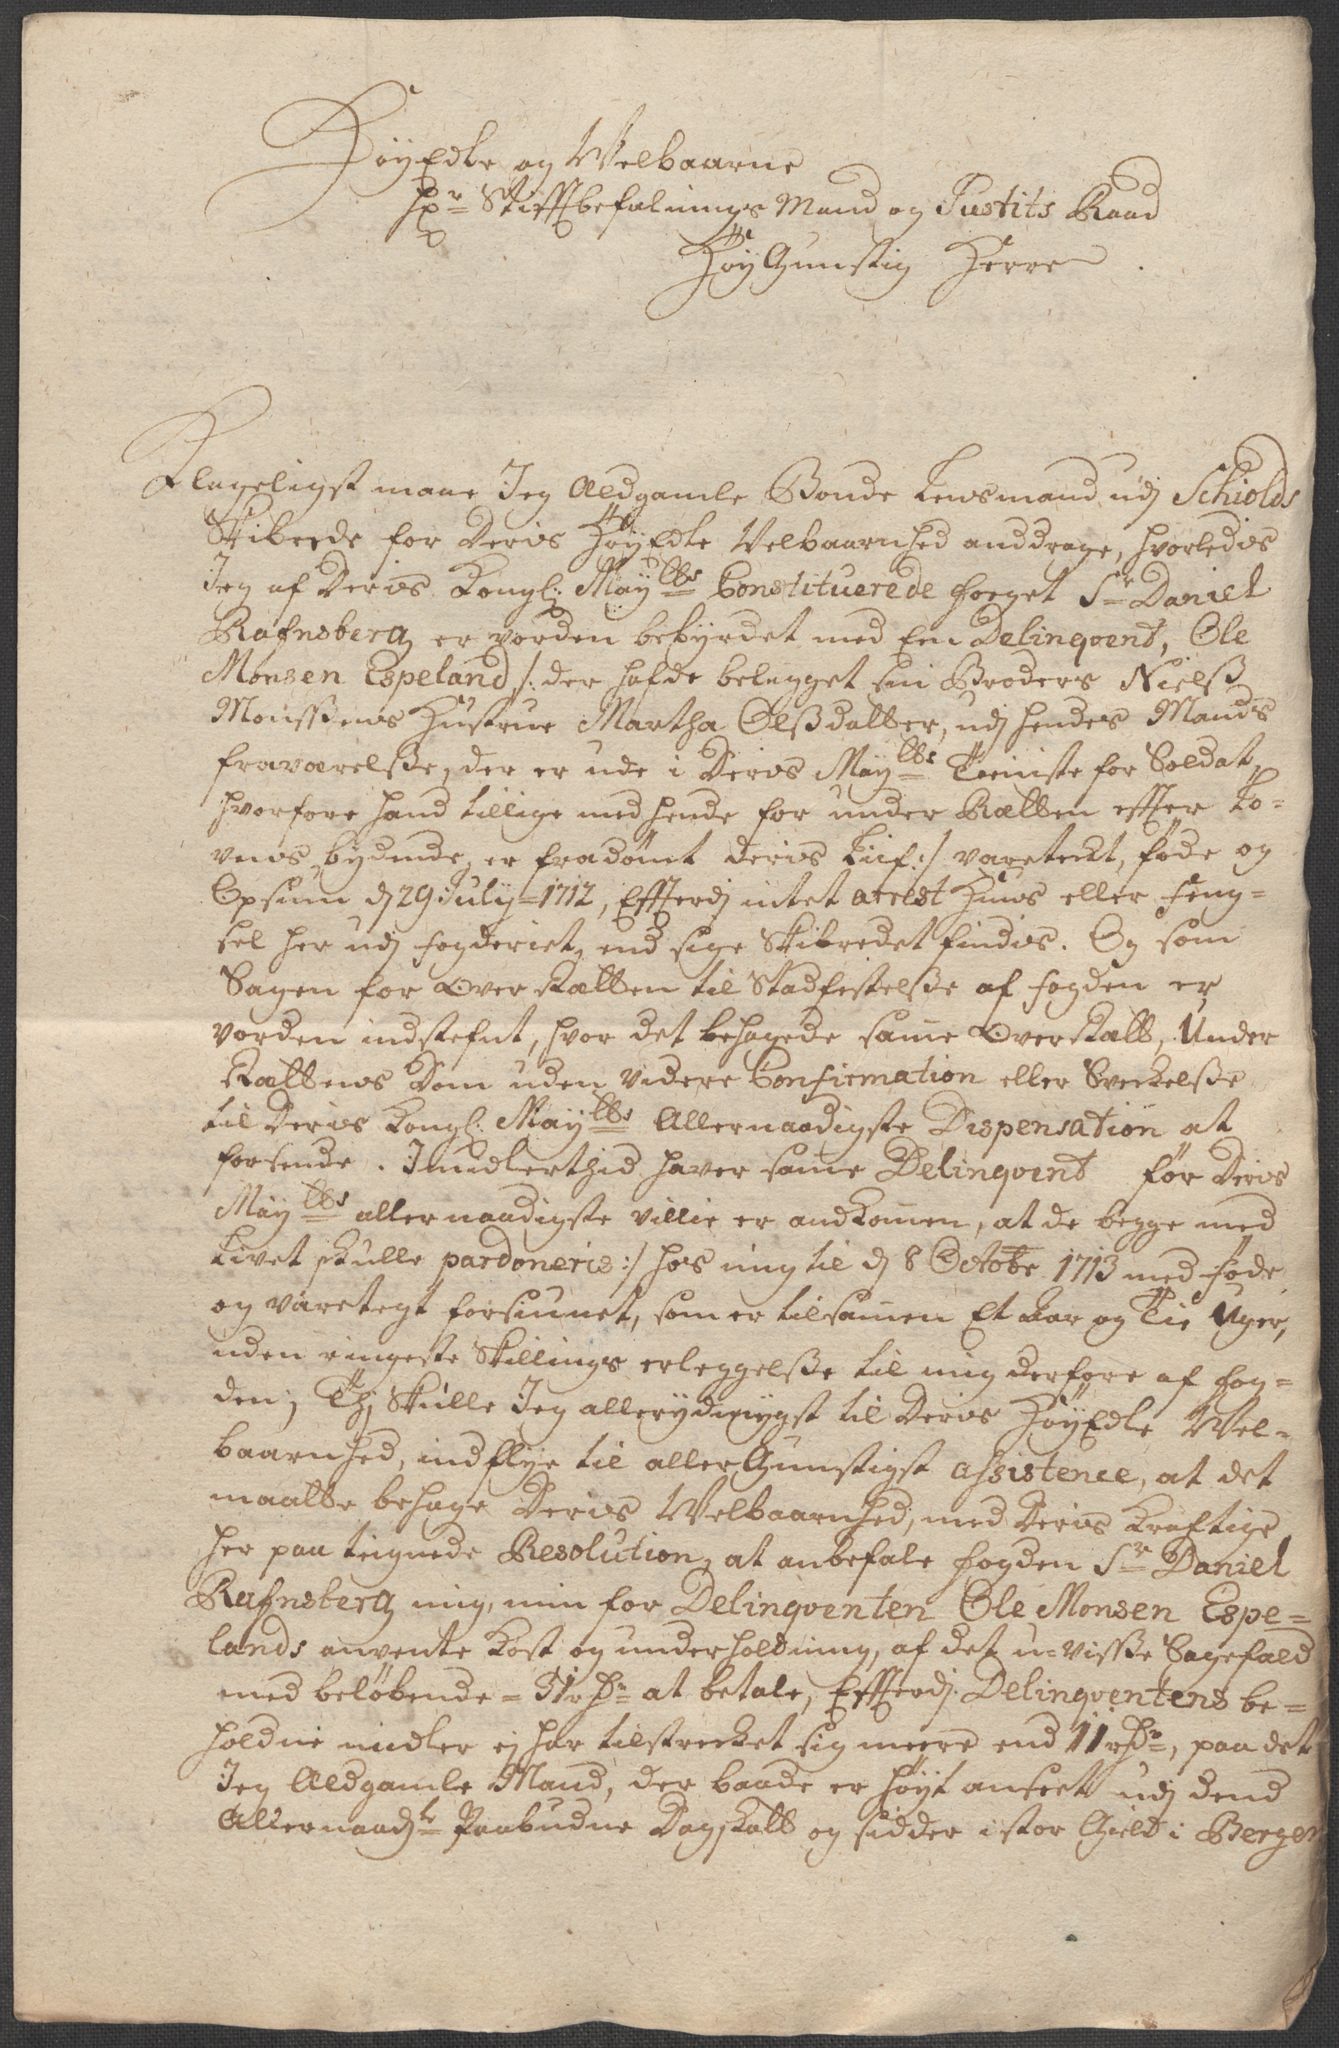 HøyEdle og Velbaarne
Hr Stifftbefalnings Mand og Justits Raad
HøyGunstig Herre
Klageligst maae Jeg Aldgamle Bonde Lensmand udj Schiolds
Skibrede for Deris HøyEdle Velbaarnhed anddrage, hvorledis
Jeg af Deris Kongl: Mayttes Constituerede Foeget Sr Daniel
Rafnsberg er vorden bebyrdet med En Delinqvent, Ole
Monsen Espeland /: der hafde belegget sin Broders Nielß
Monßens Hustrue Martha Olßdatter, udj hendes Mands
fraværelße, der er ude i Deris Mayttes Tieniste for Soldat,
hvorfore hand tillige med hende for under Rætten effter Lo-
vens bydende, er fradømt deris Liif :/ varetekt, føde og
Opsiun d 29 July 1712, Effterdj intet arrest Huus eller feng-
sel her udj fogderiet, end sige Skibredet findis. Og som
Sagen for OverRætten til Stadfestelße af fogden er
vorden indstefnt, hvor det behagede samme OverRætt, Under
Rættens Dom uden videre Confirmation eller Sveckelße
til Deris Kongl: Mayttes Allernaadigste Dispensation at
forsende. Imidlerthid haver samme Delinqvent før Deris
Mayttes allernaadigste villie er andkommen, at de begge med
Livet skulle pardoneris :/ hos mig til d 8 Octobr 1713 med føde
og varetegt forsiunet, som er tilsammen Et Aar og Tie Uger,
uden ringeste Skillings erleggelße til mig derfore af fog-
den; Thj Skulle Jeg allerydmygst til Deris HøyEdle Vel-
baarnhed, indflye til allerGunstigst assistence, at det
maatte behage Deris Velbaarnhed, med Deris Kraftige
her paa teignede Resolution, at anbefale fogden Sr Daniel
Rafnsberg mig, min for Delinqventen Ole Monsen Espe-
lands anvente Kost og underholdning, af det u-visse Sagefald
med beløbende - 31 rdr at betale, Effterdj Delinqventens be-
holdne midler ej har tilstrecket sig meere end 11 rdr, paa det
Jeg Aldgamle Mand, der baade er høyt anseet udj dend
Allernaadste Paabudne Dagskatt og sidder i stor Gield i Bergen